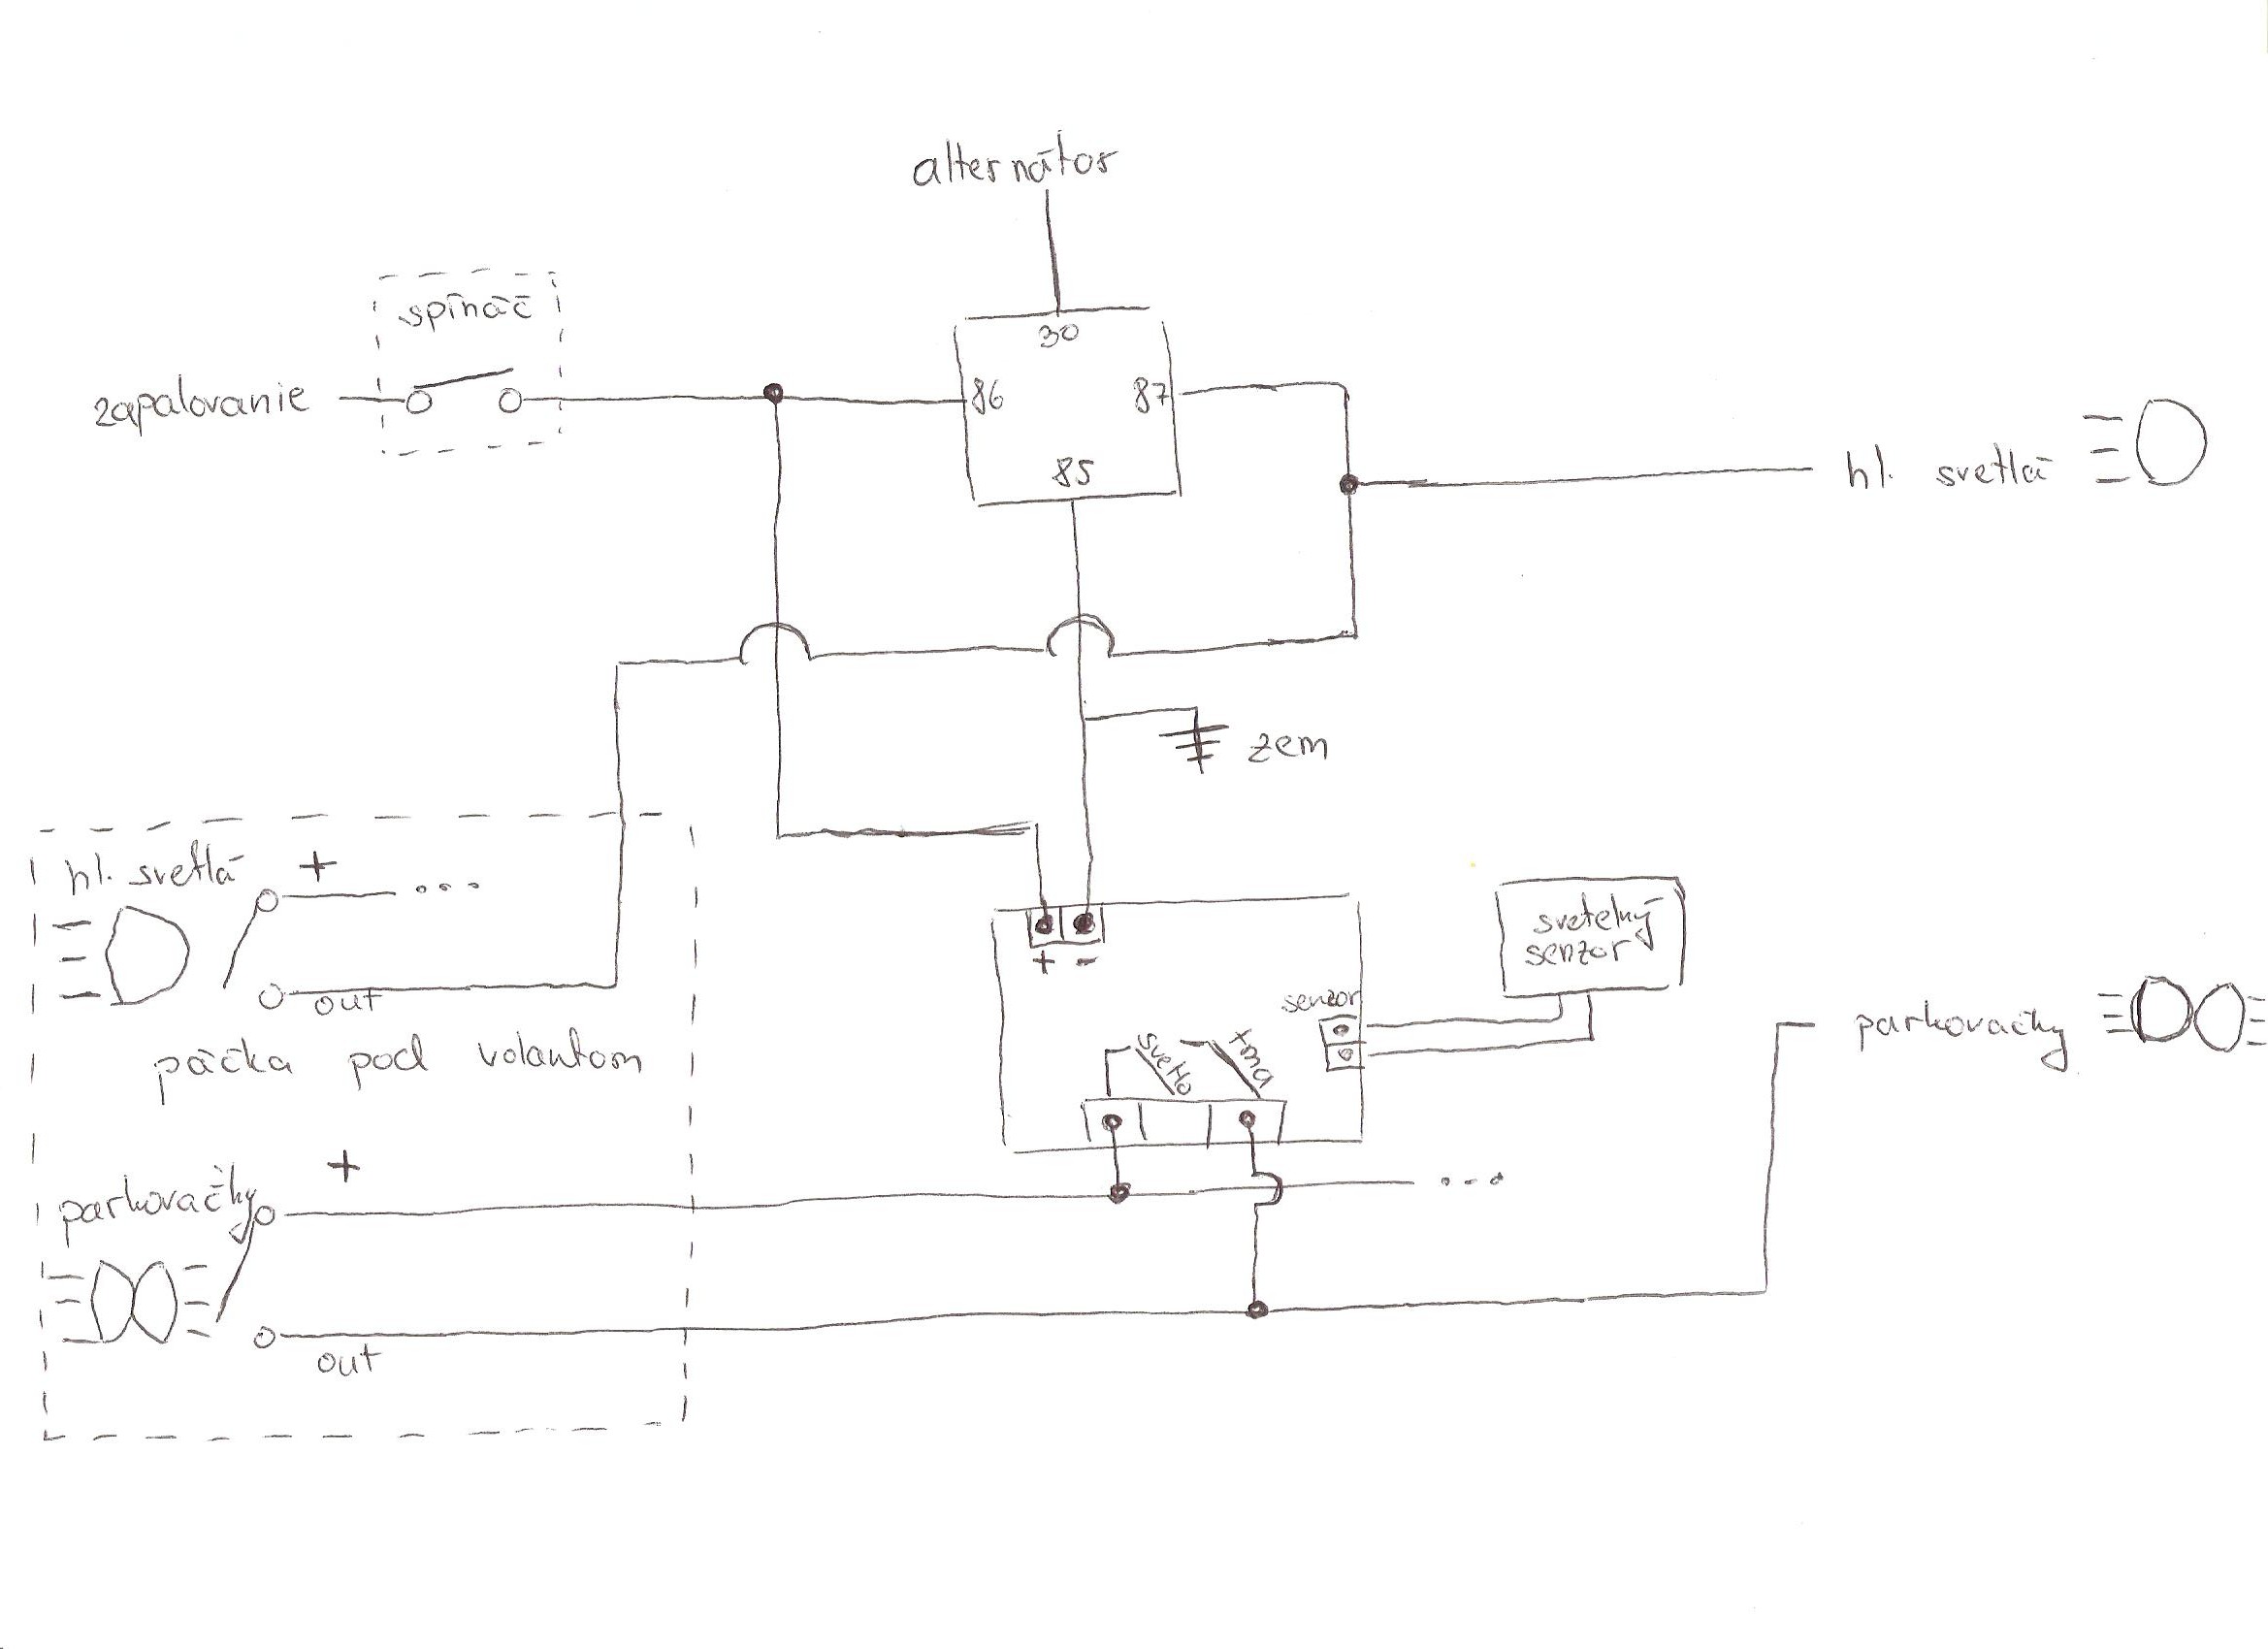 alternátor
spínač
zapalovanie
30
86
87
85
hl. svetlá
zem
hl. svetlá
+
...
out
páčka pod volantom
+ -
svetelný
senzor
senzor
svetlo
tma
parkovačky
+
parkovačky
...
out